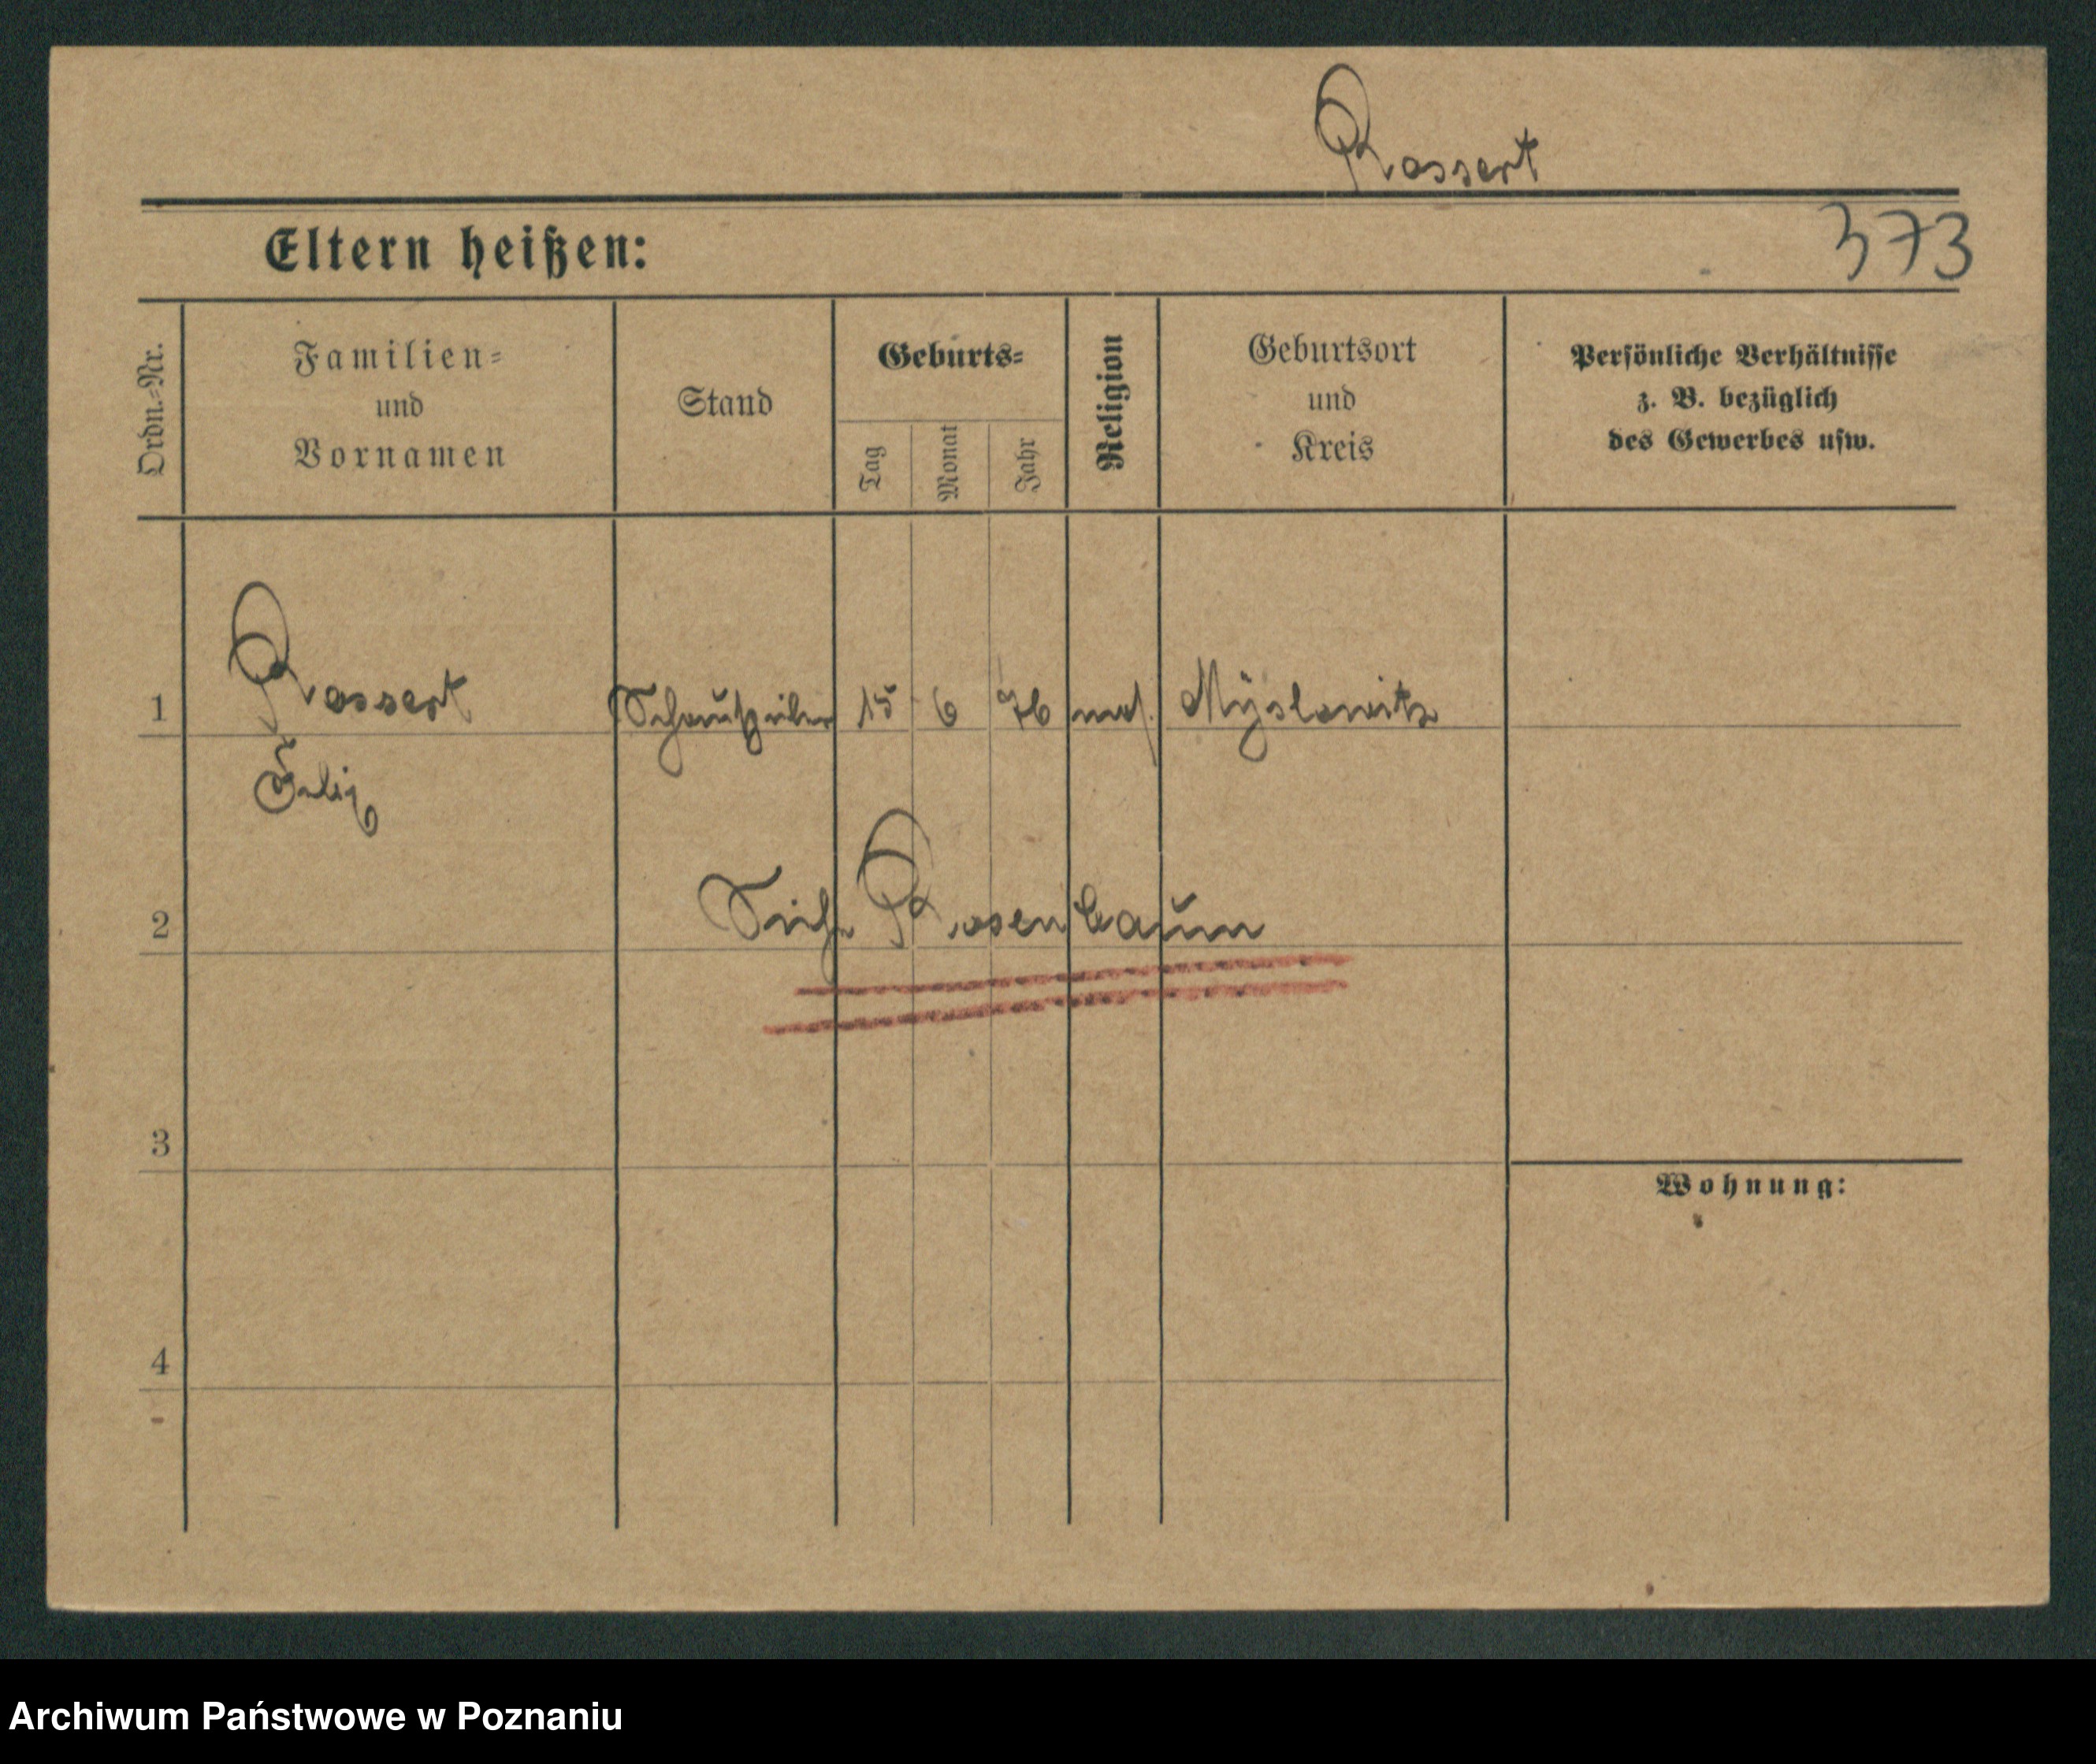 Rossert
Eltern heißen:
373
Ordn.-Nr.
Familien-
und
Vornamen
Stand
Geburts-
Tag
Monat
Jahr
Religion
Geburtsort
und
Kreis
Persönliche Verhältnisse
z. B. bezüglich
des Gewerbes usw.
1
Rossert
Schauspieler
15
6
76
Myslowitz
Felix
2
Siehe Rosenbaum
3
Wohnung:
4
Archiwum Państwowe w Poznaniu